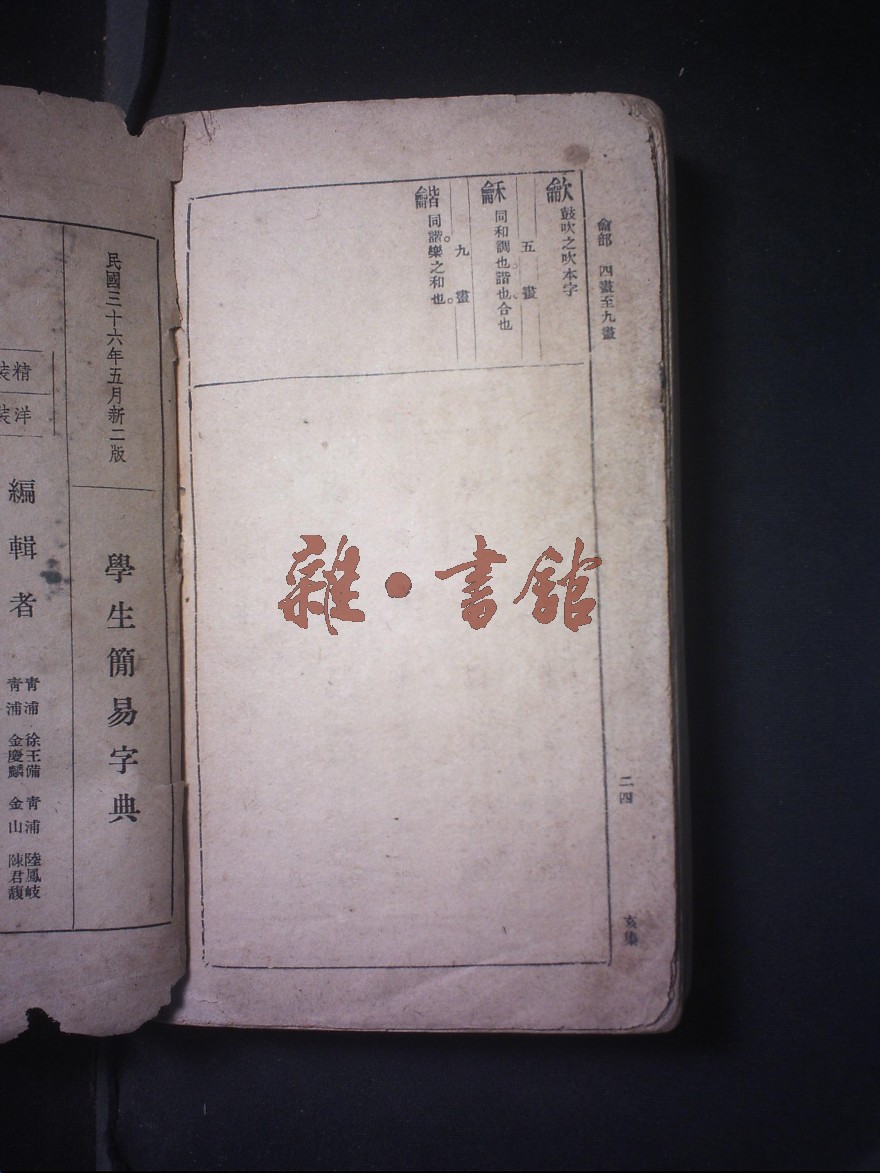 龠部 四畫至九畫
二四
亥集
龡 鼓吹之吹本字
五畫
龢 同和調也。諧也、合也
九畫
龤 同諧。樂之和也。
民國三十六年五月新二版
學生簡易字典
精裝
洋裝
編輯者
青浦 徐王備 青浦 陸鳳岐
青浦 金慶麟 金山 陳君馥
雜·書館